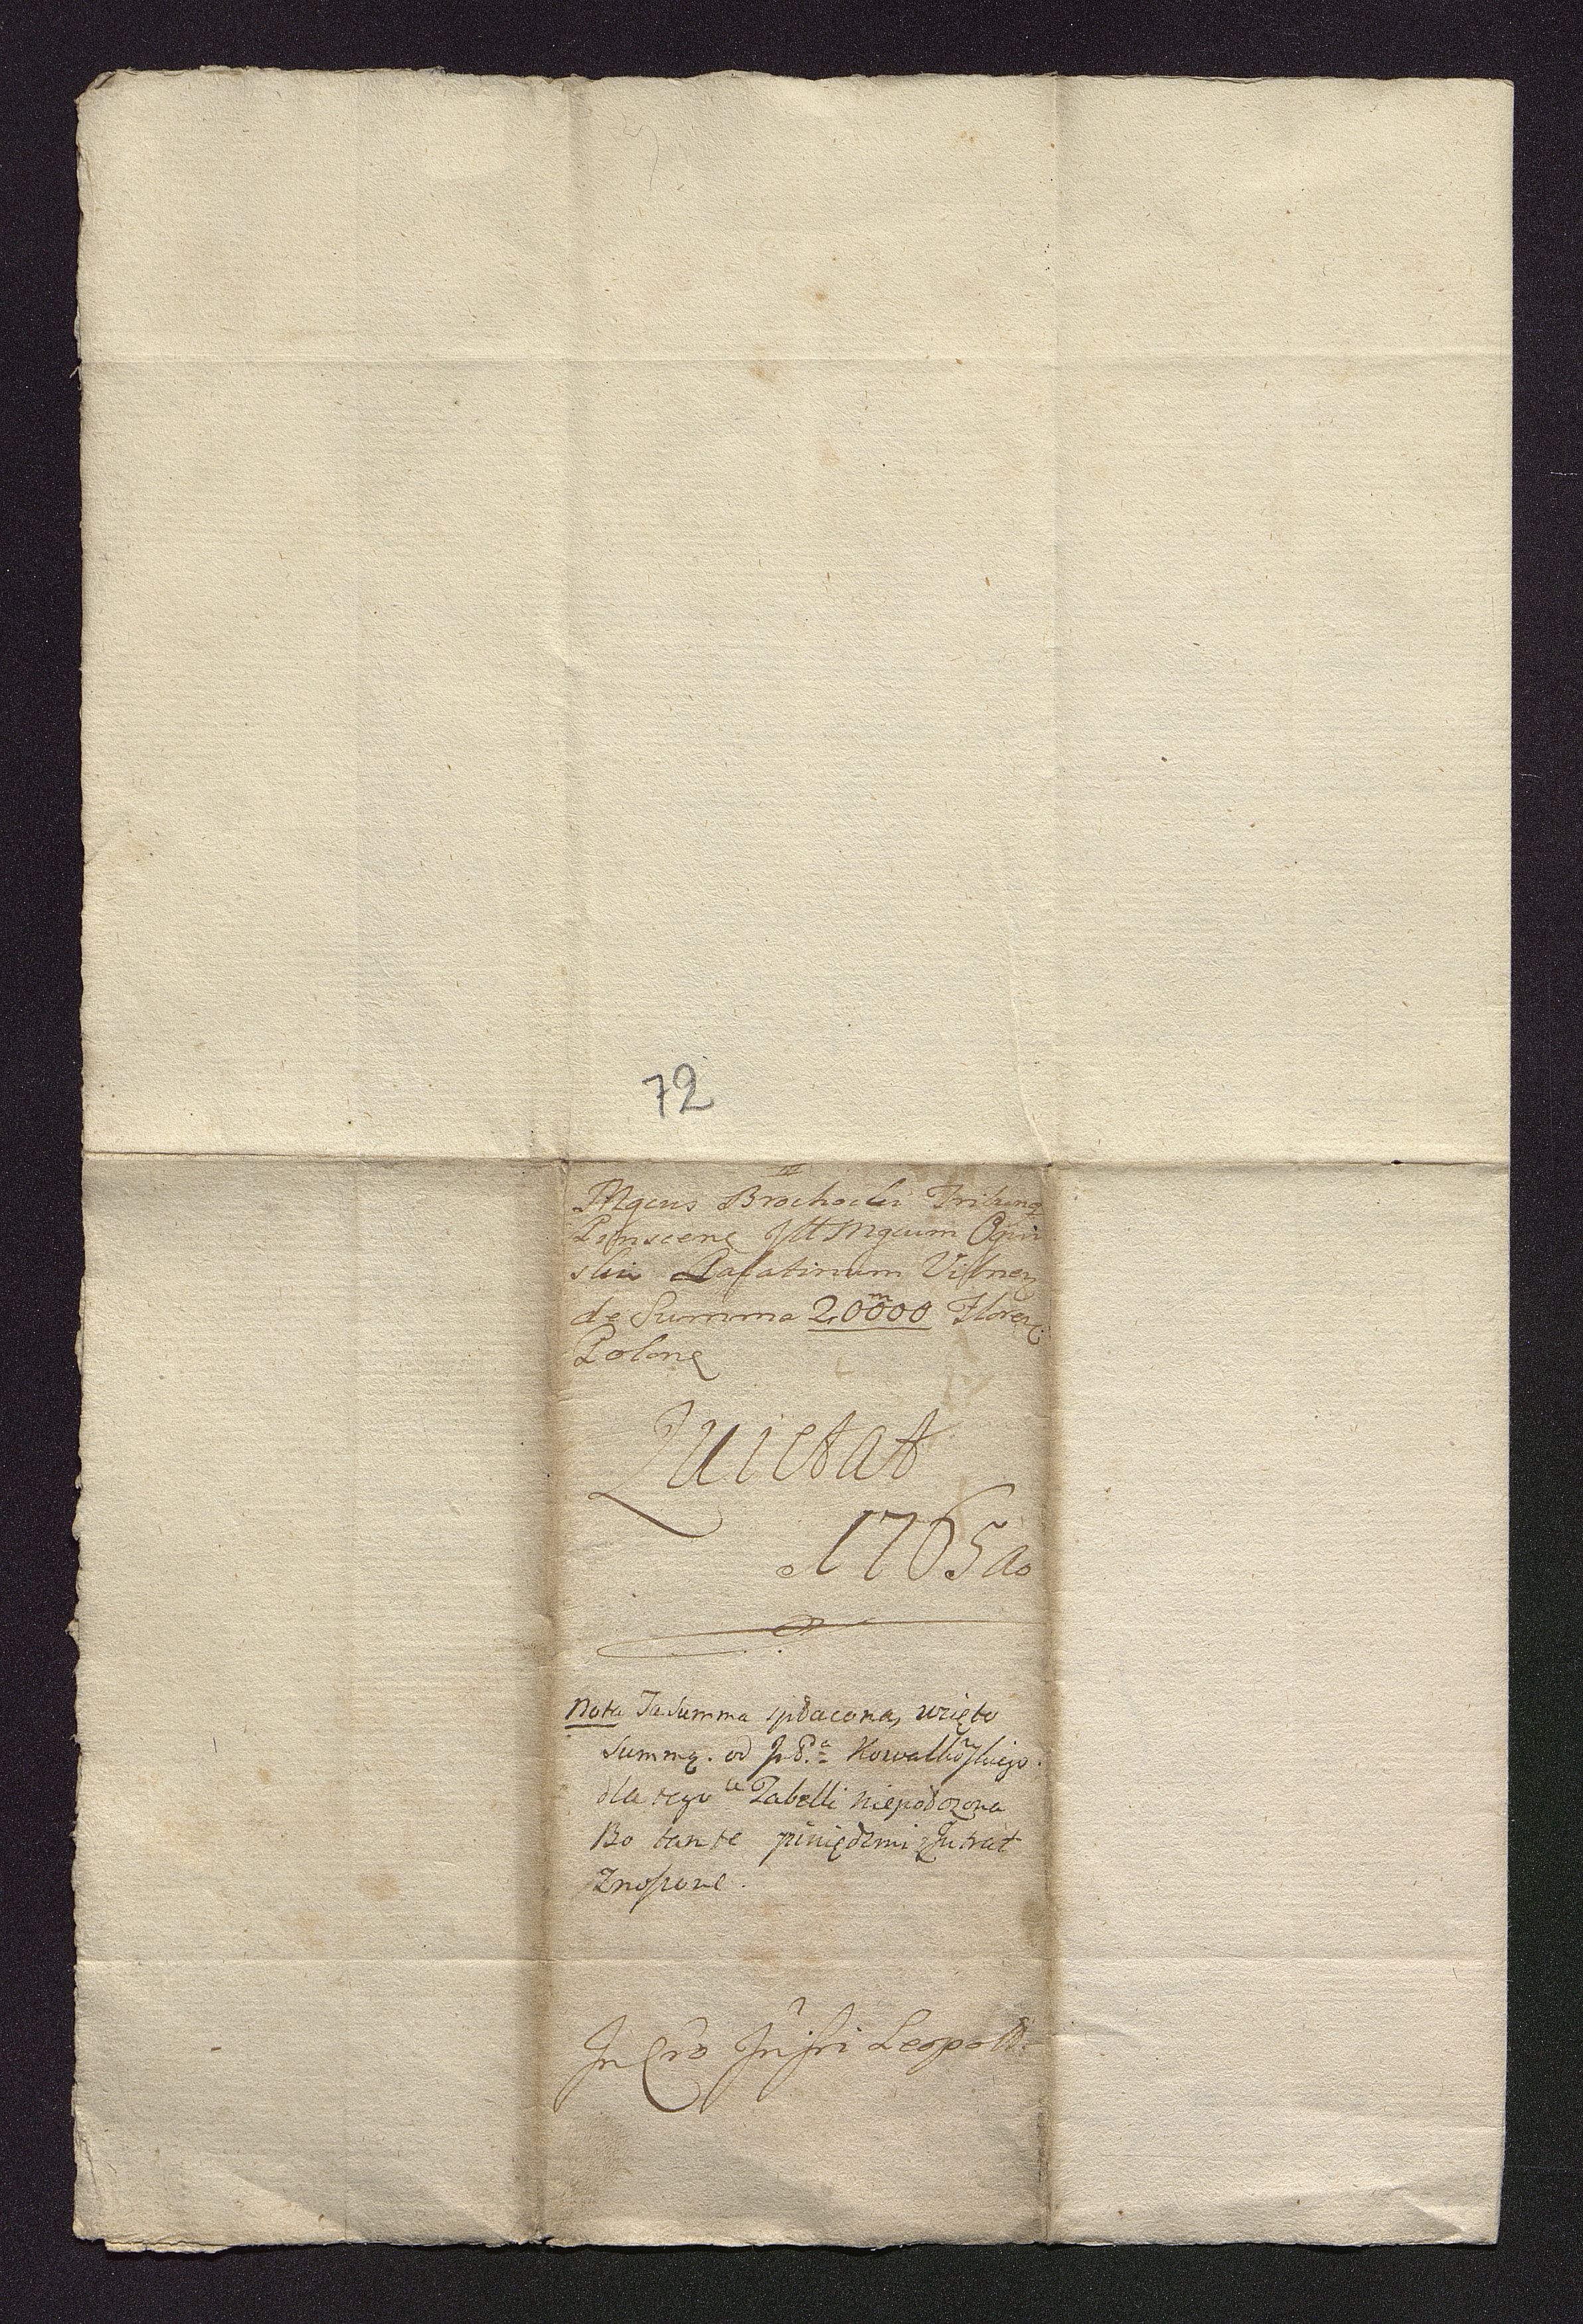 72
Mgcus Brochocki Tribung
Pinscene Illt Mgcum Ogin
skii Palatinum Vilnen
de Summa 20000 m Floren
Polone
Quietat
1765 ao
Nota Ta Summa spłacona, wzięto
Summę. od Kowalkowskiego.
dla tego w Tabelli niepołozona
Bo tante piniędzmi
Znosione.
In Cro Leopold.